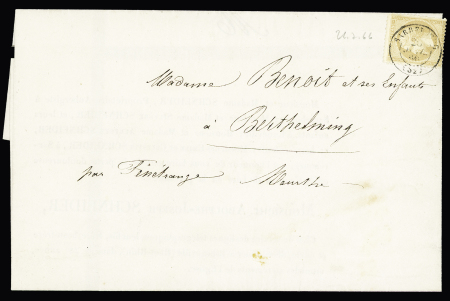 22.3.66
Madame Benoit et ses Enfants
à Berthelming
par Fénétrange Meurthe
(52)